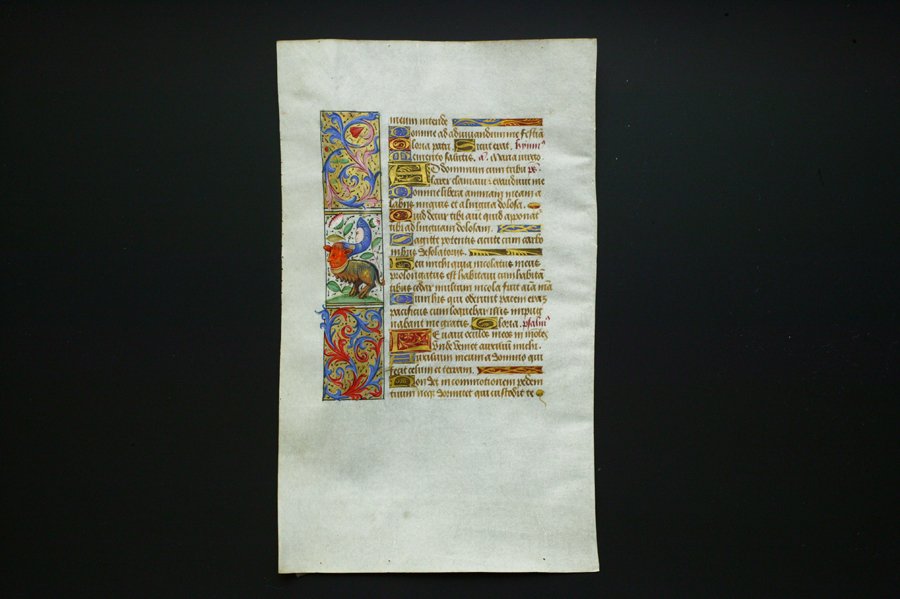 meum intende
Domine ad adiuvandum me festiā
Gloria patri. Sicut erat. hymn⁹
Memento salutis. a. Maria virgo.
AD dominum cum tribu ps.
larer clamavi: exaudivit me
Domine libera animam meam a
labiis iniquis et a lingua dolosa.
Quid detur tibi aut quid apponat
tibi ad linguam dolosam.
Sagitte potentis acute cum carbo
nibus desolatoriis.
Heu michi quia incolatus meus
prolongatus est habitavi cum habitā
tibus cedar multum incola fuit aīa mā
Cum his qui oderunt pacem erā
pacificus cum loquebar illis impug
nabant me gratis. Gloria. psalm⁹
LEvavi oculos meos in motes
Unde veniet auxilium michi.
Auxilium meum a domino qui
fecit celum et terram.
Non det in commotionem pedem
tuum neqȝ dormitet qui custodit te